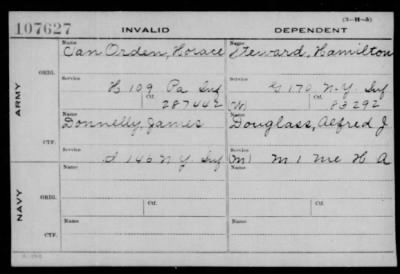 (3-H-5)
107627 INVALID DEPENDENT
Name Name
Van Orden, Horace Steward, Hamilton
ORIG.
Service Service
H 109 Pa Inf G 170 N.Y. Inf
Ctf. Ctf.
287442 (W) 83292
ARMY
Name Name
Donnelly, James Douglass, Alfred J
CTF.
Service Service
I 146 N Y Inf (M) M 1 Me H A
Name Name
ORIG.
Ctf. Ctf.
NAVY
Name Name
CTF.